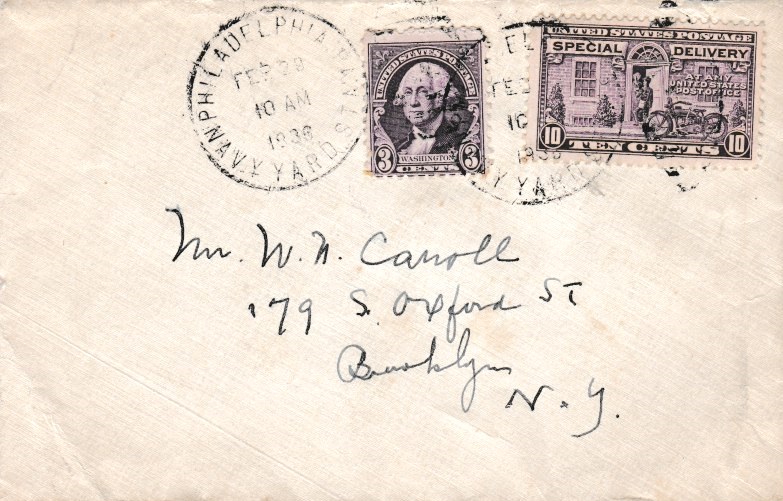 PHILADELPHIA PA.
FEB 29
10 AM
1936
NAVY YARD STA.
UNITED STATES POSTAGE
3 WASHINGTON 3
CENTS
FEB
10
1936
Y YARD
UNITED STATES POSTAGE
SPECIAL DELIVERY
AT ANY
UNITED STATES
POST OFFICE
10 TEN CENTS 10
Mr. W. N. Carroll
179 S. Oxford ST
Brooklyn
N.Y.